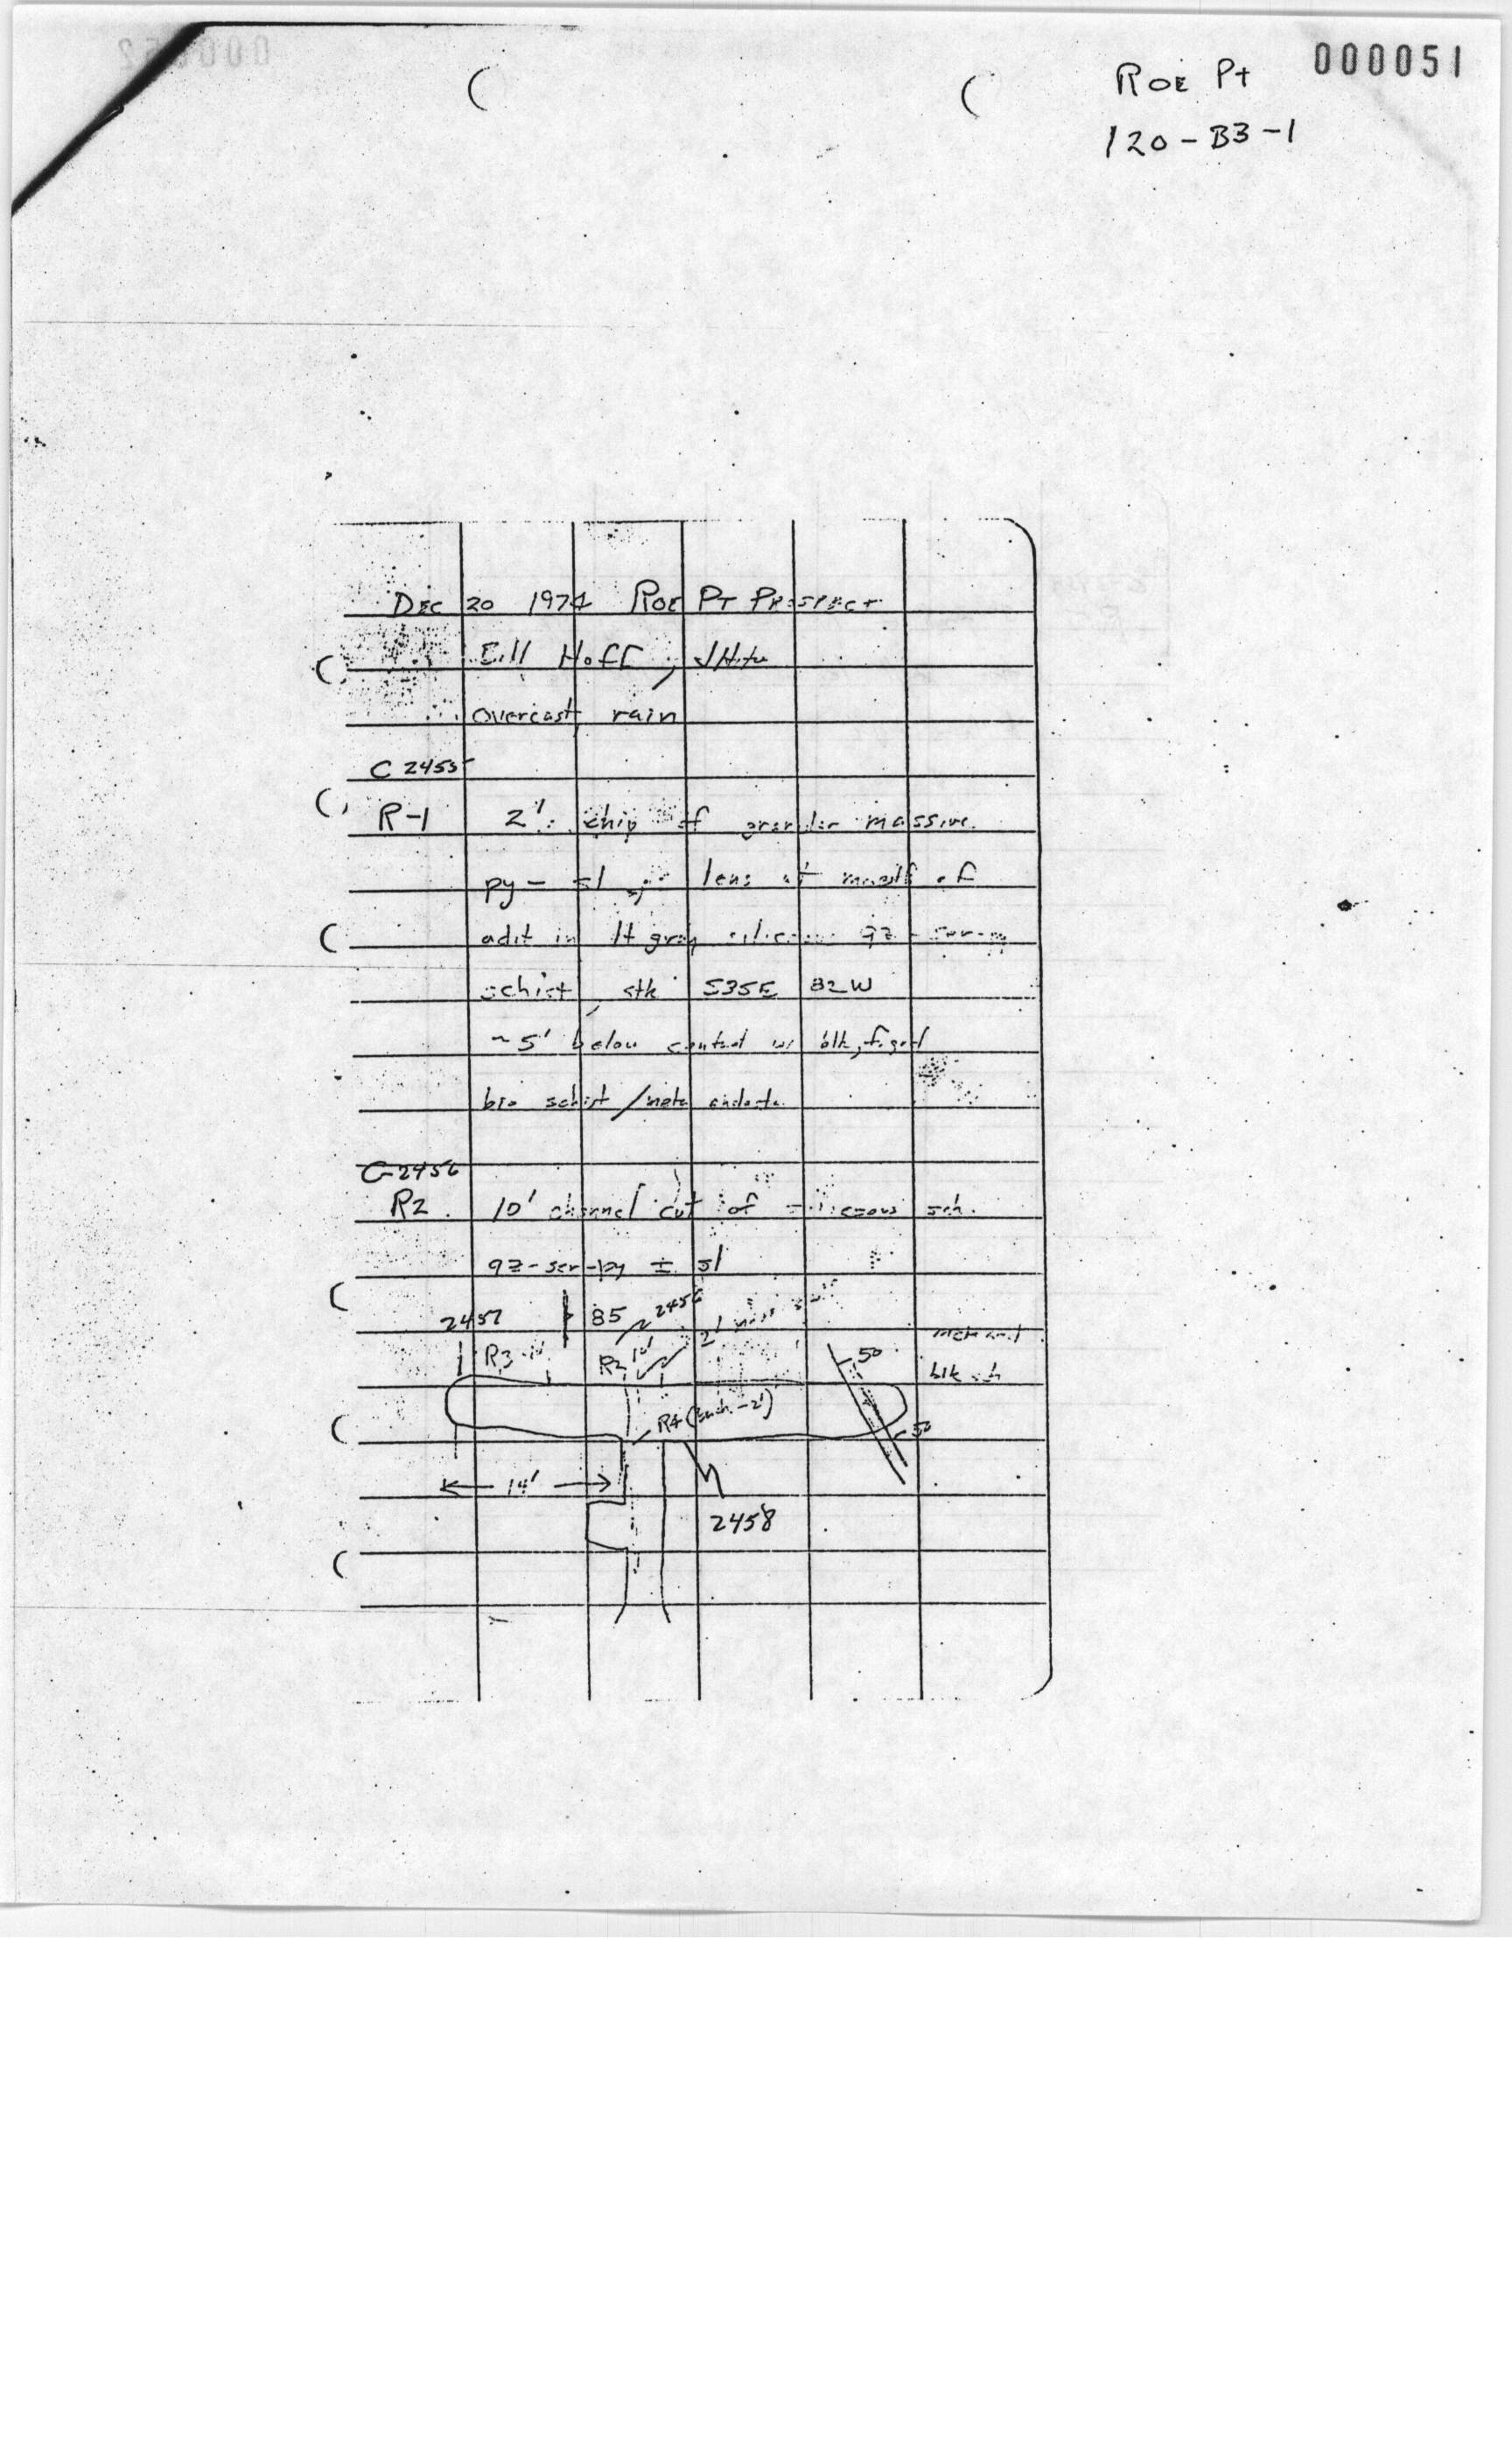 000051
ROE Pt
120-B3-1
DEC 20 1974 ROE PT PROSPECT
Bill Hoff,
overcast, rain
C 2455
R-1 2' chip of granular massive
py- sl lens at mouth of
adit in lt gray siliceous qz-ser-py
schist, stk S35E 82W
~5' below contact w/ blk, f.grd
bio schist / meta andesite
C-2456
R2. 10' channel cut of siliceous sch.
qz-ser-py ± sl
2457 85 2456
R3 R2 10' 2' 50 blk sch
R4 50
14'
2458